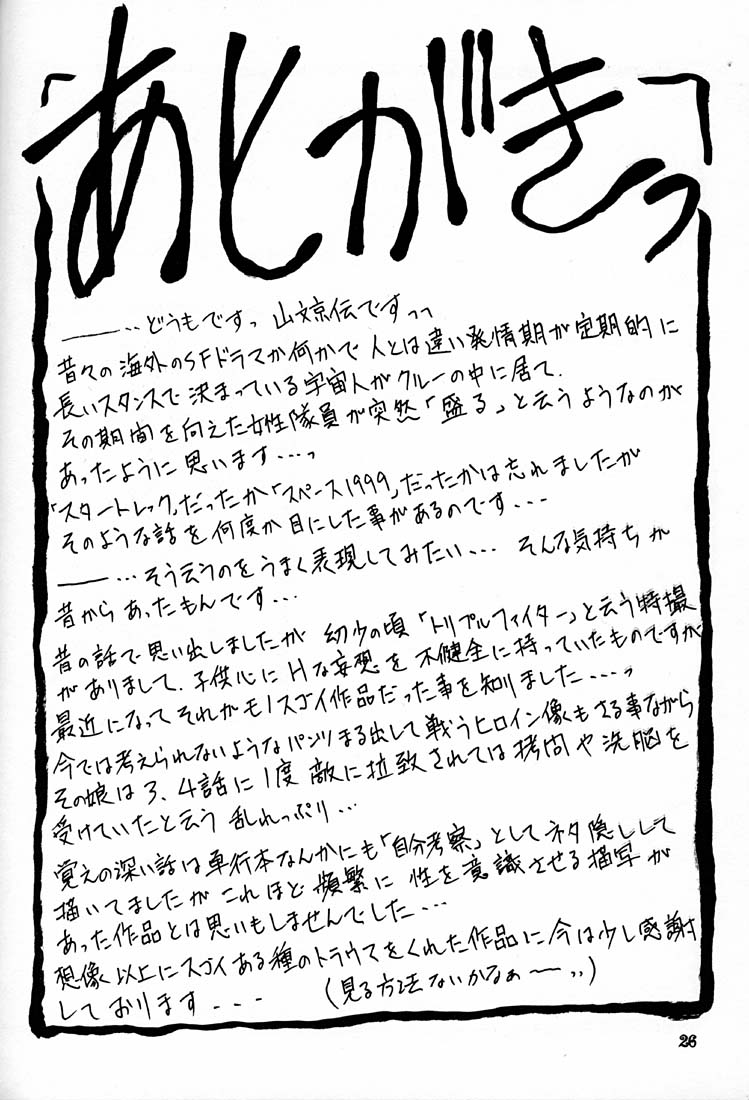 「あとがきっ」
――‥どうもですっ 山文京伝ですっっ
昔々の海外のSFドラマか何かで人とは違い発情期が定期的に
長いスタンスで決まっている宇宙人がクルーの中に居て、
その期間を向えた女性隊員が突然「盛る」と云うようなのが
あったように思います…っ
「スタートレック」だったか「スペース1999」だったかは忘れましたが
そのような話を何度か目にした事があるのです…
――…そう云うのをうまく表現してみたい… そんな気持ちが
昔からあったもんです…
昔の話で思い出しましたが 幼少の頃「トリプルファイター」と云う特撮
がありまして、子供心にHな妄想を不健全に持っていたものですが
最近になってそれがモノスゴイ作品だった事を知りました…っ
今では考えられないようなパンツまる出しで戦うヒロイン像もさる事ながら
その娘は3、4話に1度 敵に拉致されては拷問や洗脳を
受けていたと云う 乱れっぷり…
覚えの深い話は単行本なんかにも「自分考察」としてネタ隠しして
描いてましたが これほど頻繁に 性を意識させる描写が
あった作品とは思いもしませんでした…
想像以上にスゴイある種のトラウマをくれた作品に今は少し感謝
しております… (見る方法ないかなぁー‥)
26